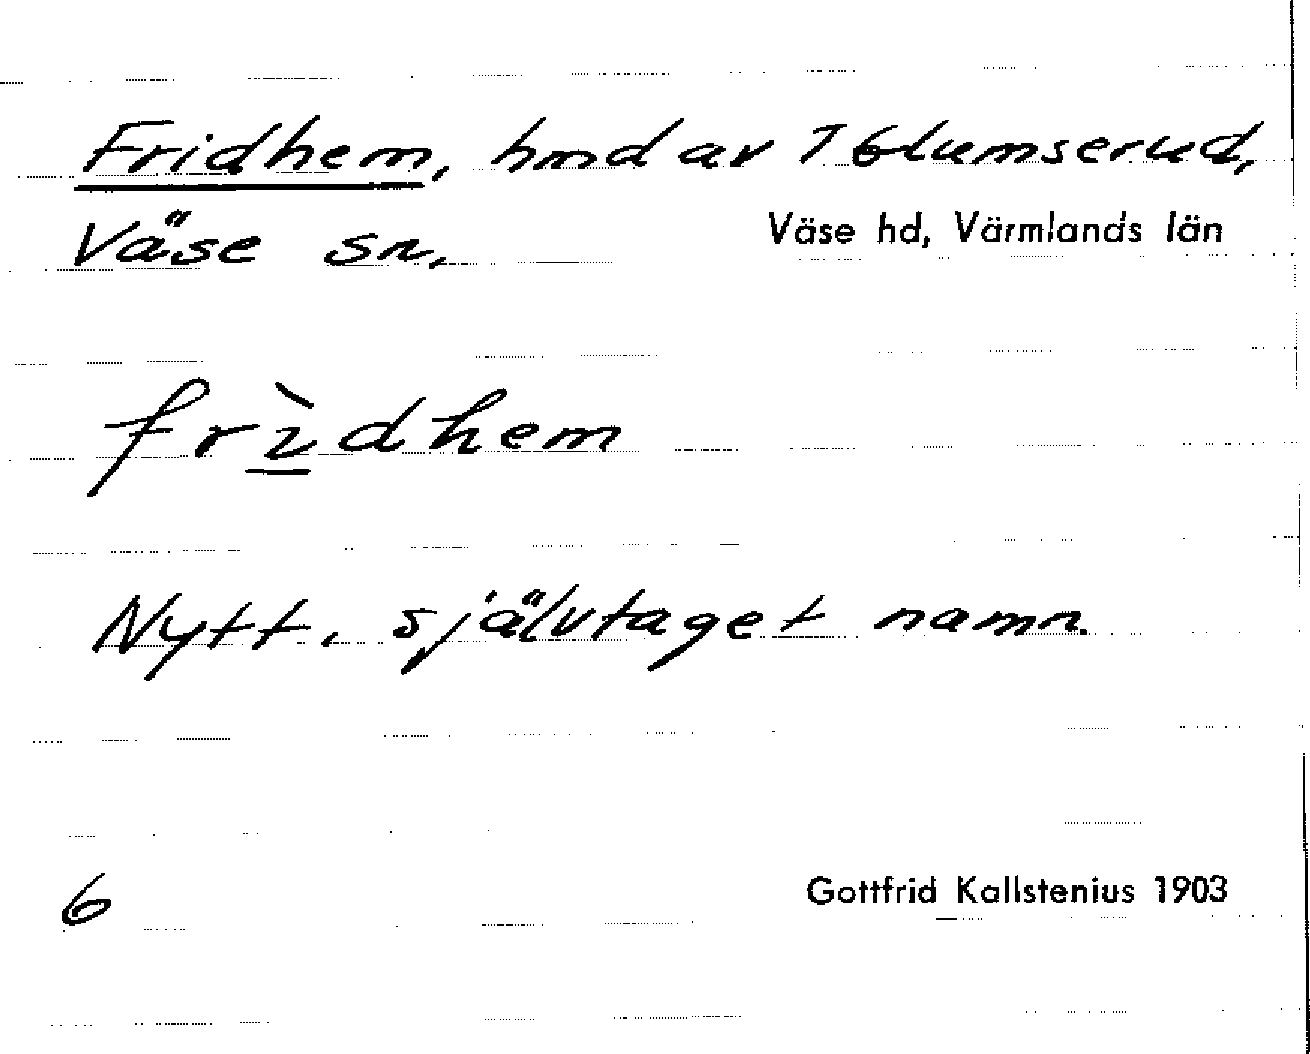 Fridhem, hmd av 7 Glumserud,
Väse sn. Väse hd, Värmlands län
frìdhem
Nytt, självtaget namn.
6 Gottfrid Kallstenius 1903